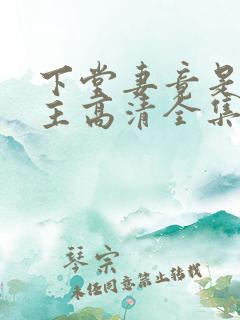 下堂妻竟是
王高清全集
琴宗
未经同意禁止转载